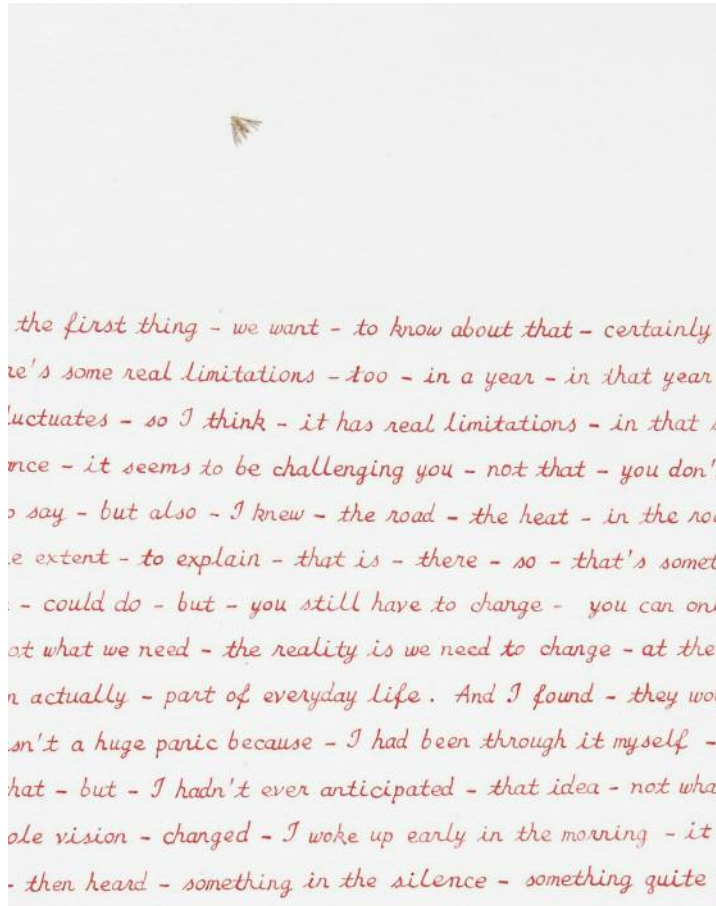 the first thing - we want - to know about that - certainly
re's some real limitations - too - in a year - in that year
luctuates - so I think - it has real limitations - in that
nce - it seems to be challenging you - not that - you don'
say - but also - I knew - the road - the heat - in the
e extent - to explain - that is - there - so - that's
- could do - but - you still have to change - you can
ot what we need - the reality is we need to change - at the
n actually - part of everyday life. And I found - they
sn't a huge panic because - I had been through it myself -
hat - but - I hadn't ever anticipated - that idea - not
ole vision - changed - I woke up early in the morning - it
- then heard - something in the silence - something quite